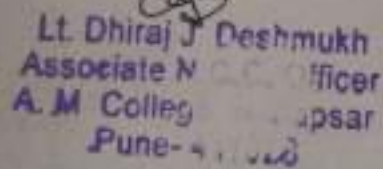 Lt. Dhiraj J Deshmukh
Associate N C.C. Officer
A. M Colleg
Pune-